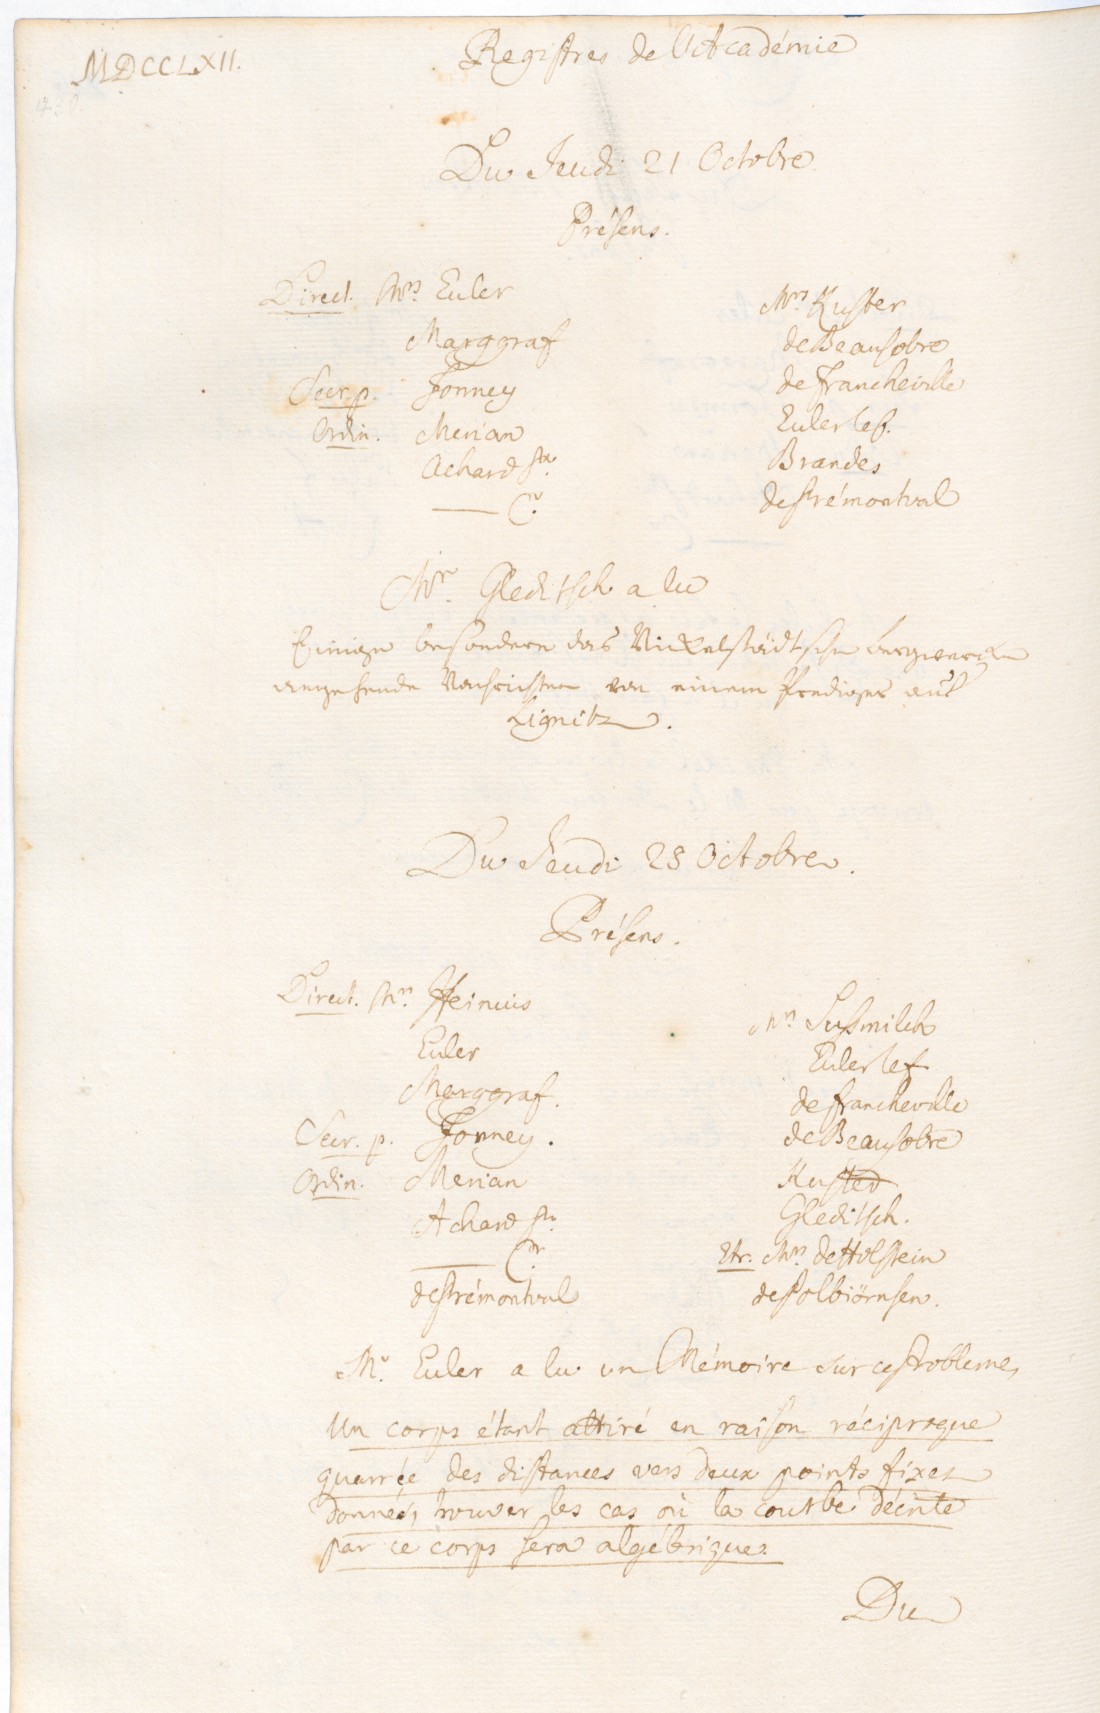 MDCCLXII.
Registres de l'Académie
Du Jeudi 21 Octobre
Présens.
Direct. Mrs Euler
Marggraf
Secr. p. Formey
Ordin. Merian
Achard Sr.
— Cr.
Mrs Kuster
de Beausobre
de Francheville
Euler le f.
Brandes
de Prémontval
Mr. Gleditsch a lu
Einige besondere das Nickelstädtsche Bergwerck
angehende Nachrichten von einem Prediger aus
Lignitz.
Du Jeudi 28 Octobre.
Présens.
Direct. Mrs Heinius
Euler
Marggraf.
Secr. p. Formey.
Ordin. Merian
Achard Sr.
— Cr.
de Prémontval
Mrs Susmilch
Euler le f
de Francheville
de Beausobre
Kuster
Gleditsch.
Etr. Mrs de Holstein
de Kolbiörnsen.
Mr. Euler a lu un Mémoire sur ce Probleme,
Un corps étant attiré en raison réciproque
quarrée des distances vers deux points fixes
donnés, trouver les cas où la courbe décrite
par ce corps sera algébrique.
Du